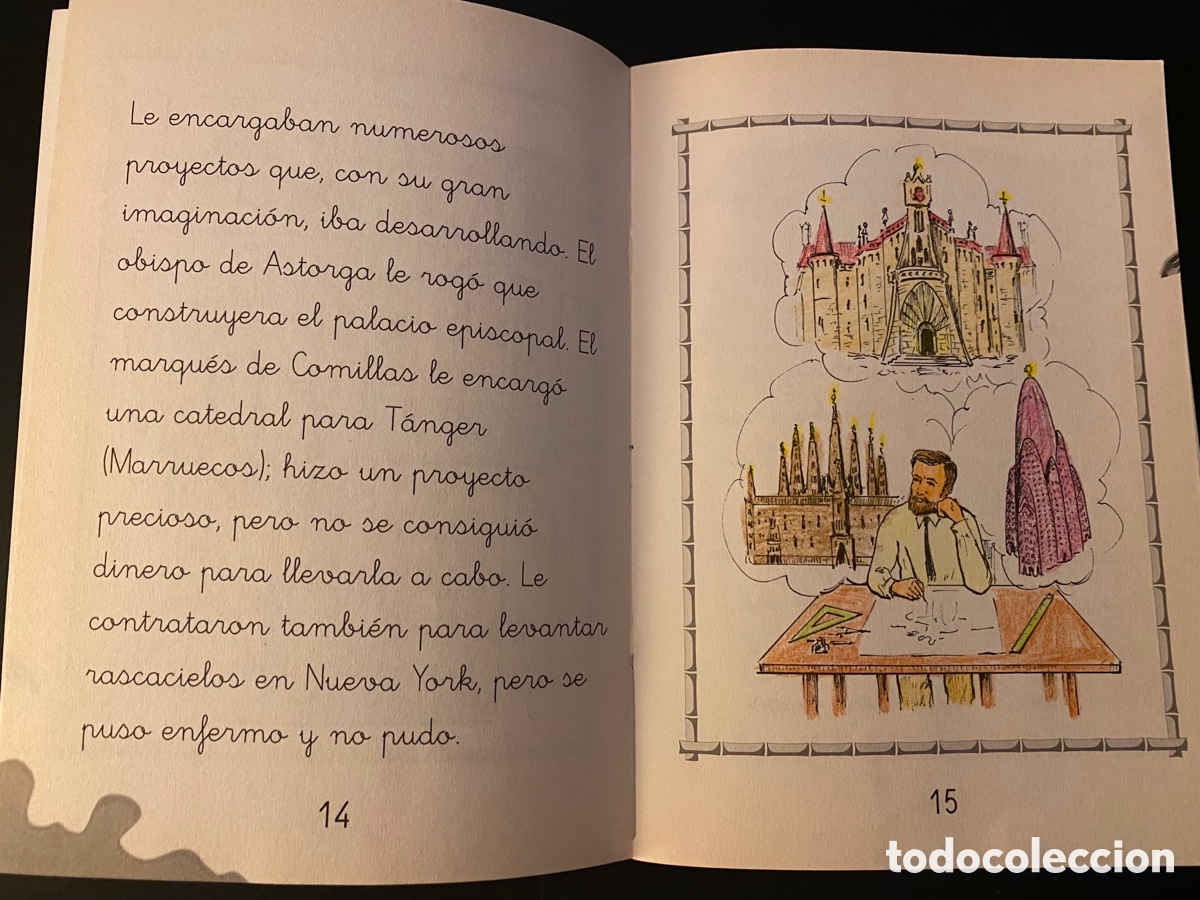 Le encargaban numerosos
proyectos que, con su gran
imaginación, iba desarrollando. El
obispo de Astorga le rogó que
construyera el palacio episcopal. El
marqués de Comillas le encargó
una catedral para Tánger
(Marruecos); hizo un proyecto
precioso, pero no se consiguió
dinero para llevarla a cabo. Le
contrataron también para levantar
rascacielos en Nueva York, pero se
puso enfermo y no pudo.
14
15
todocoleccion